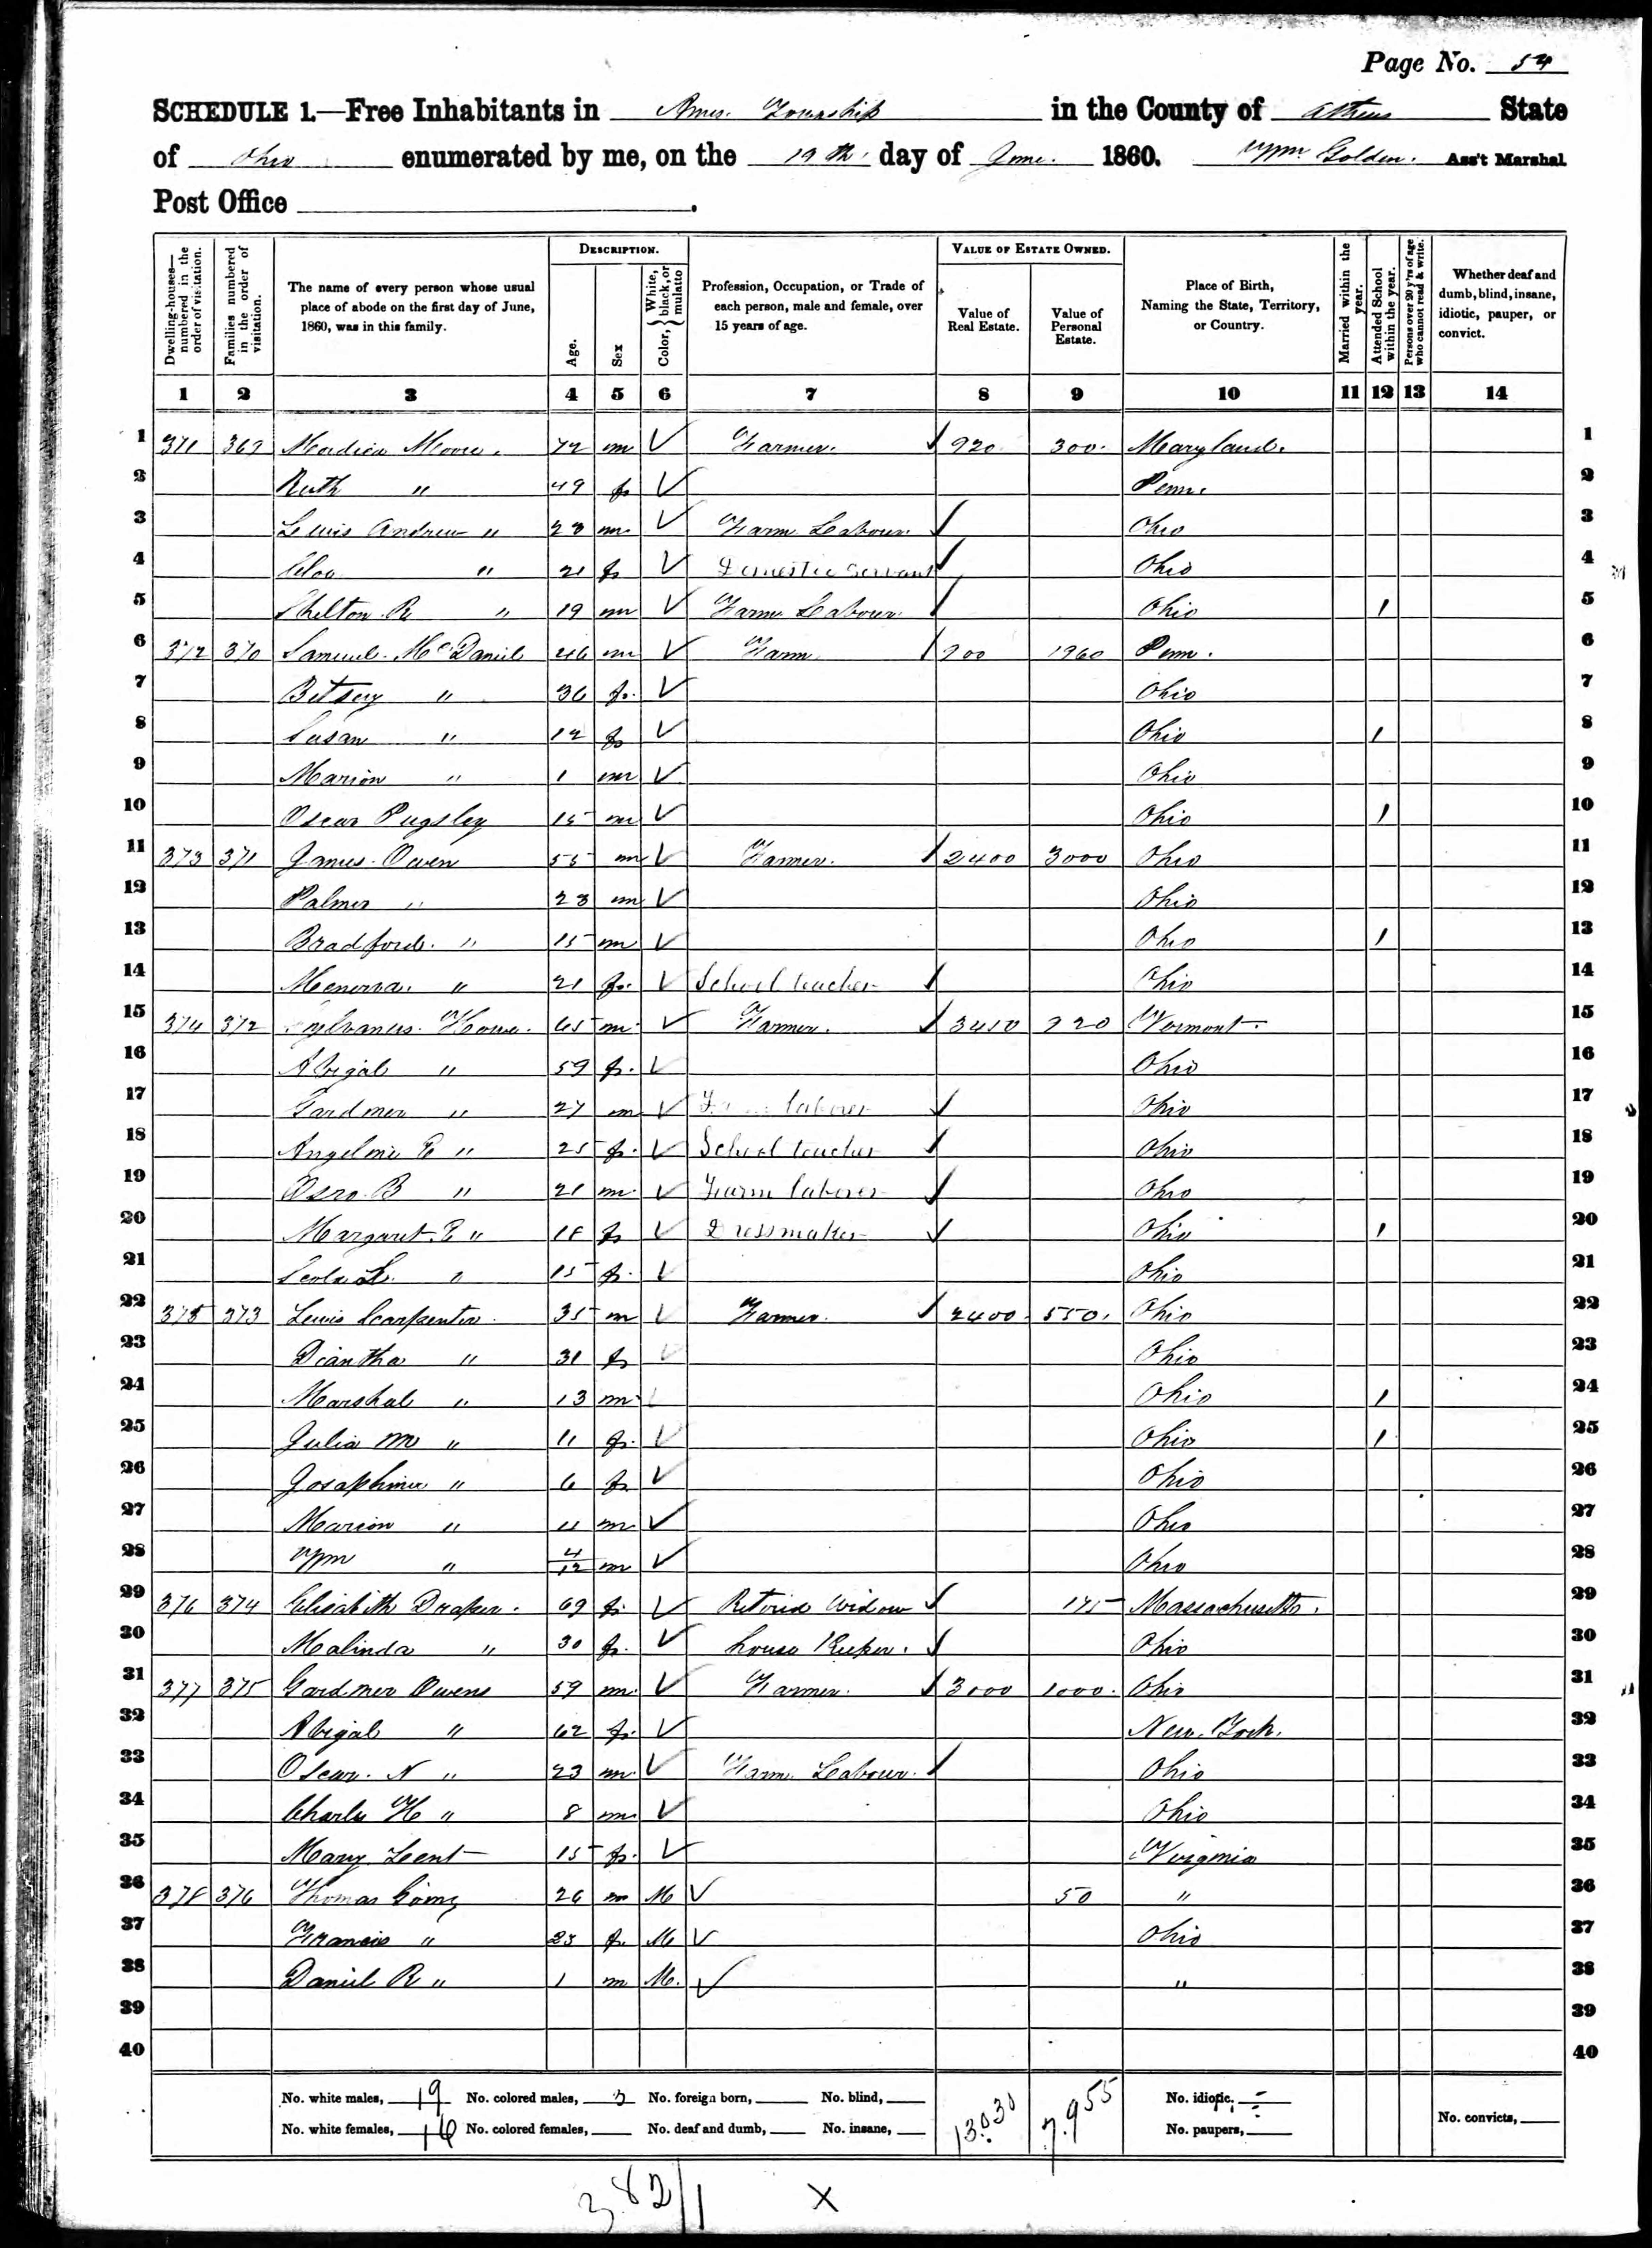 Page No. 54
SCHEDULE 1.—Free Inhabitants in Ames Township in the County of Athens State
of Ohio enumerated by me, on the 19th day of June 1860. Wm Golden. Ass't Marshal
Post Office
Dwelling-houses—numbered in the order of visitation. Families numbered in the order of visitation. The name of every person whose usual place of abode on the first day of June, 1860, was in this family. DESCRIPTION. Age. Sex Color, { White, black, or mulatto Profession, Occupation, or Trade of each person, male and female, over 15 years of age. VALUE OF ESTATE OWNED. Value of Real Estate. Value of Personal Estate. Place of Birth, Naming the State, Territory, or Country. Married within the year. Attended School within the year. Persons over 20 y'rs of age who cannot read & write. Whether deaf and dumb, blind, insane, idiotic, pauper, or convict.
1 2 3 4 5 6 7 8 9 10 11 12 13 14
1 371 369 Moore. 72 m Farmer. 920 300. Maryland. 1
2 Ruth " 49 f Penn. 2
3 Lewis Andrew " 23 m Farm Labour. Ohio 3
4 " 21 f Domestic Servant Ohio 4
5 Shelton R " 19 m Farm Labour Ohio / 5
6 372 370 Samuel McDaniel 46 m Farm 900 1960 Penn. 6
7 Betsey " 36 f. Ohio 7
8 Susan " 12 f Ohio / 8
9 Marion " 1 m Ohio 9
10 Oscar Pugsley 15 m Ohio / 10
11 373 371 James Owen 55 m Farmer. 2400 3000 Ohio 11
12 Palmer " 23 m Ohio 12
13 Bradford. " 15 m Ohio / 13
14 Menerva. " 21 f. School teacher Ohio 14
15 374 372 Sylvanus Howe. 65 m. Farmer. 3450 920 Vermont. 15
16 Abigal " 59 f. Ohio 16
17 Gardner " 27 m Farm laborer Ohio 17
18 Angeline E " 25 f. School teacher Ohio 18
19 Osro B " 21 m. Farm laborer Ohio 19
20 Margaret E " 18 f Dressmaker Ohio / 20
21 " 15 f. Ohio 21
22 375 373 Lewis Carpenter 35 m Farmer. 2400. 550. Ohio 22
23 Diantha " 31 f Ohio 23
24 Marshal " 13 m Ohio / 24
25 Julia M " 11 f. Ohio / 25
26 Josaphine " 6 f Ohio 26
27 Marion " 4 m Ohio 27
28 Wm " 4/12 m Ohio 28
29 376 374 Elisabith Draper. 69 f. Retired Widow 175 Massachusetts. 29
30 Malinda " 30 f. house Keeper. Ohio 30
31 377 375 Gardner Owens 59 m. Farmer. 3000 1000. Ohio 31
32 Abigal " 62 f. New York. 32
33 Oscar. N " 23 m. Farm Labour. Ohio 33
34 Charles H " 8 m Ohio 34
35 Mary Lent 15 f. Virginia 35
36 378 376 Thomas 26 m M 50 " 36
37 Francis " 25 f. M Ohio 37
38 Daniel R " 1 m M. " 38
39 39
40 40
No. white males, 19 No. colored males, 3 No. foreign born, No. blind, 13030 7.955 No. idiotic,
No. white females, 16 No. colored females, No. deaf and dumb, No. insane, No. paupers, No. convicts,
382/1 X